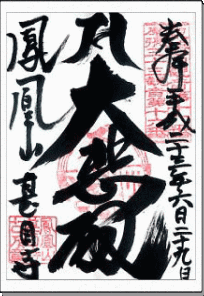 奉拝 平成二十三年六月二十九日
大悲殿
鳳凰山 甚目寺